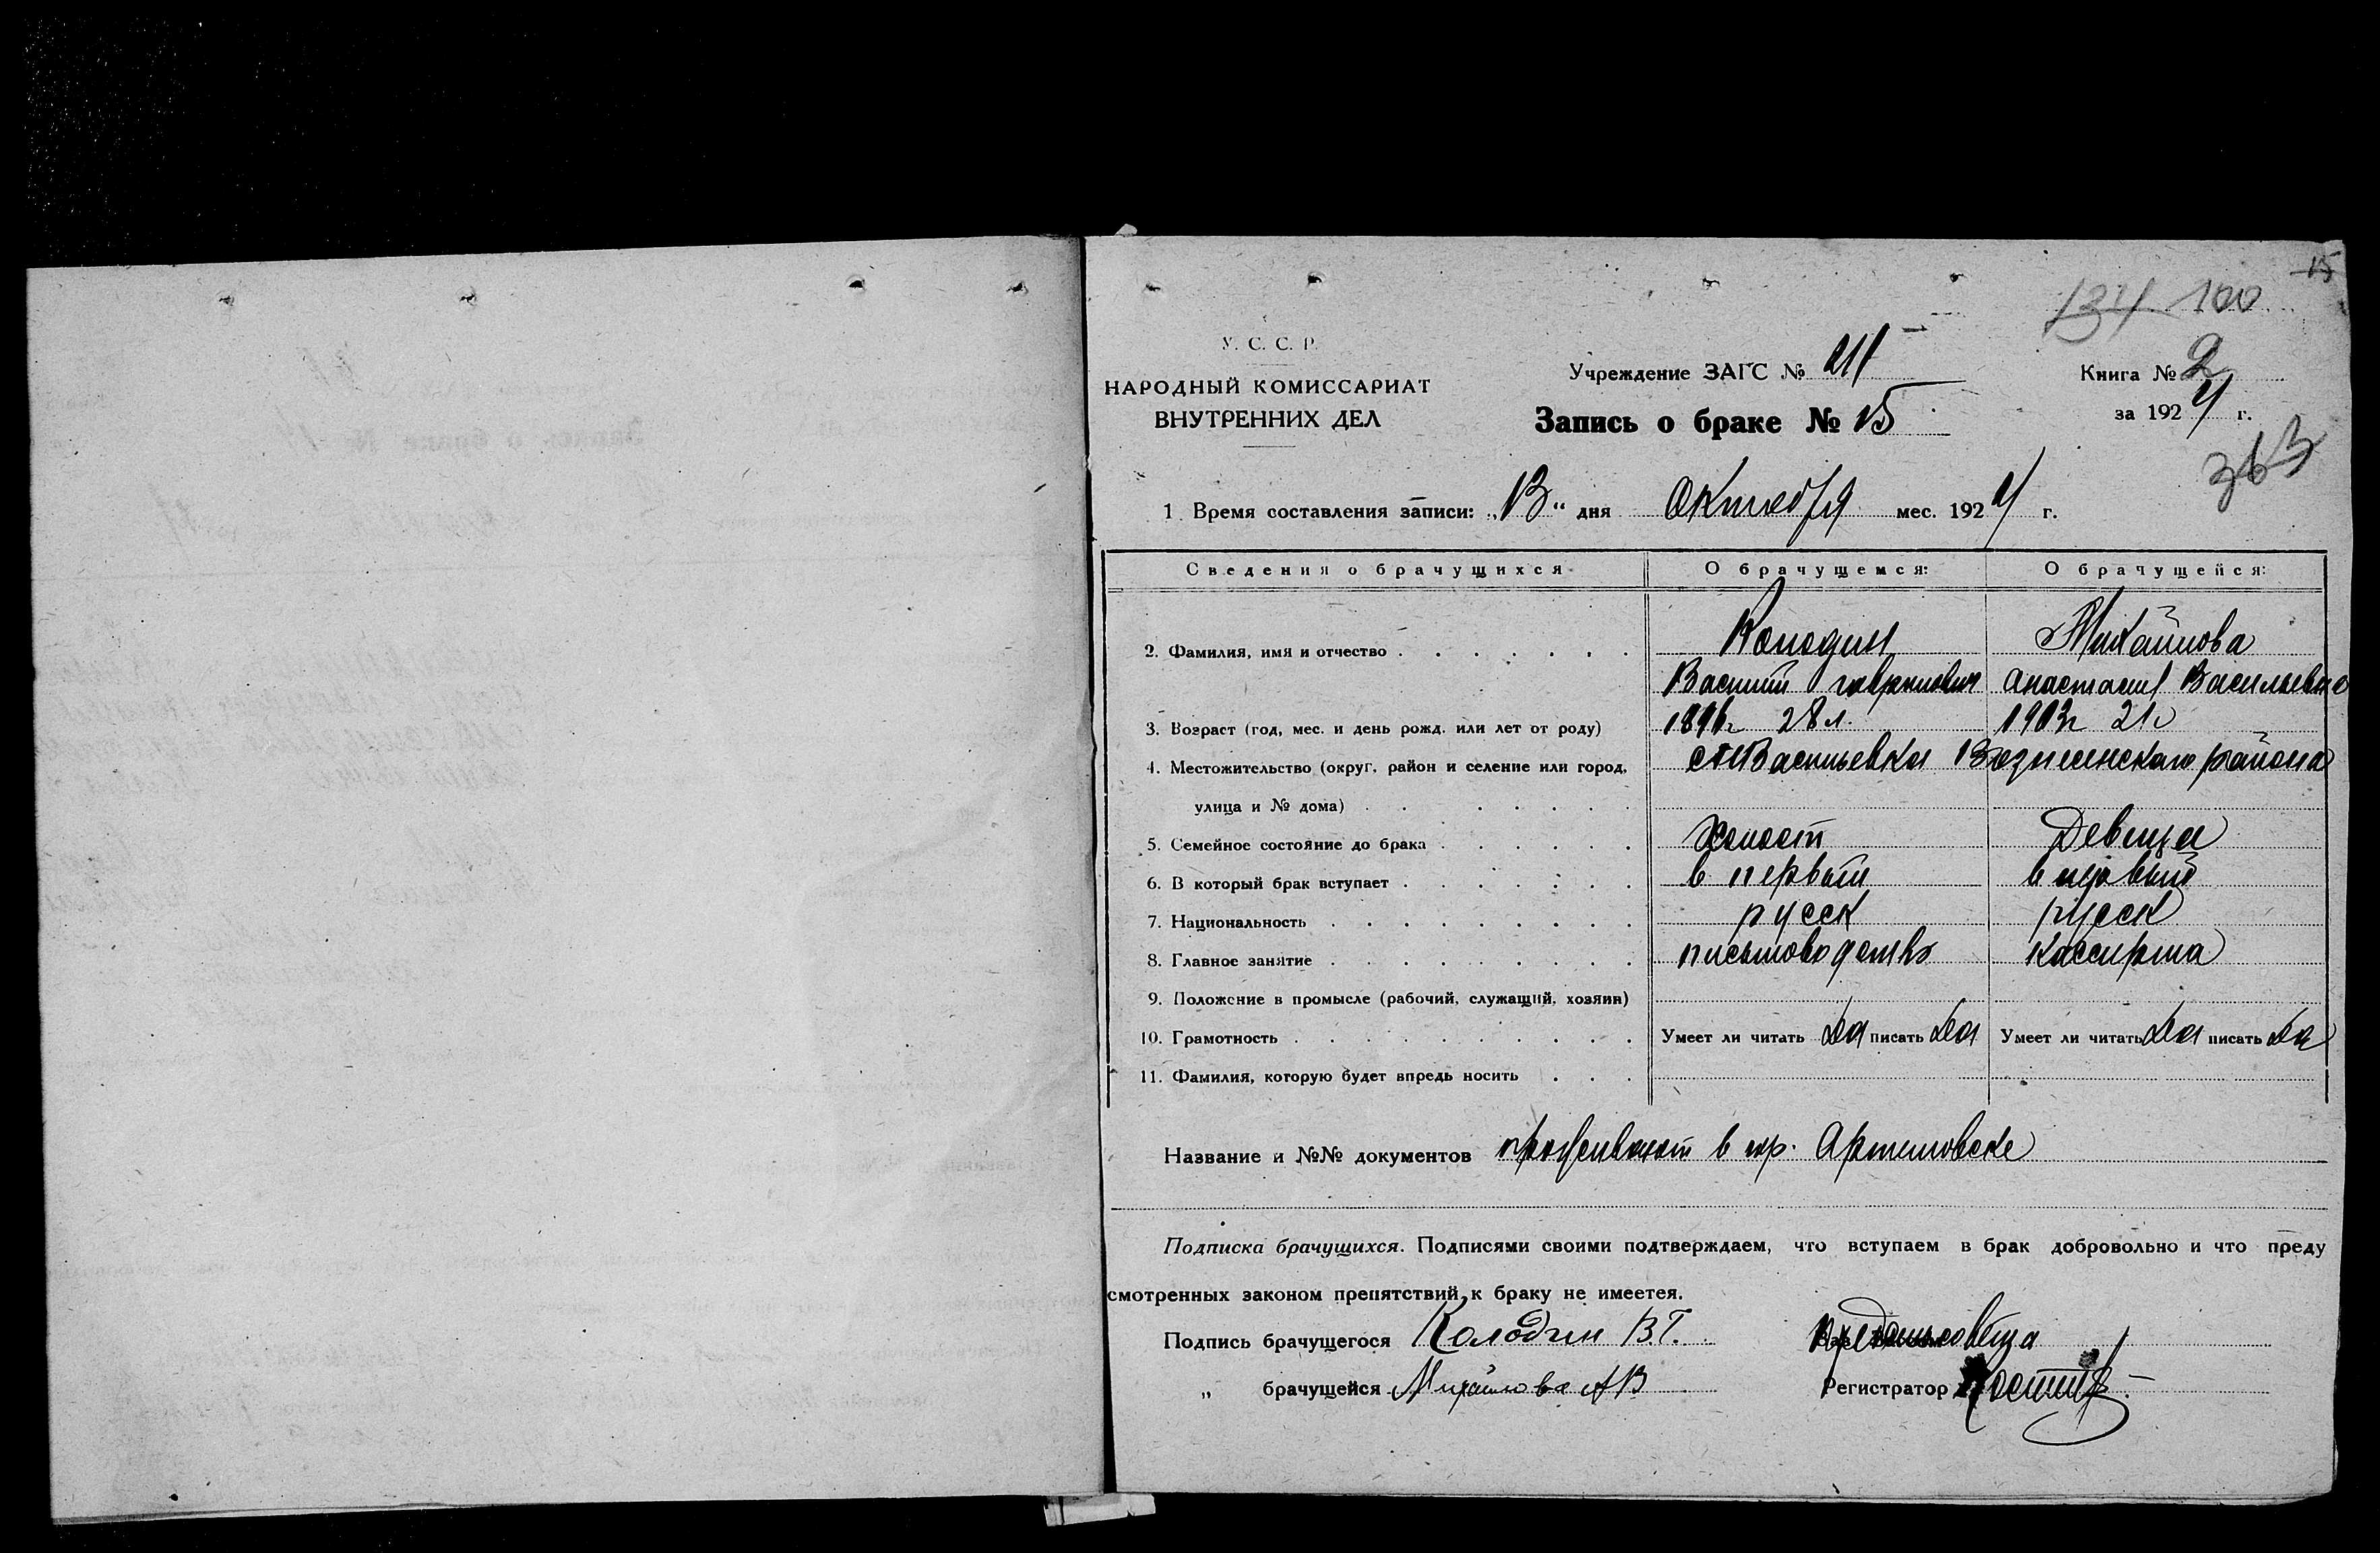 15
134 100
У. С. С. Р.
НАРОДНЫЙ КОМИССАРИАТ
ВНУТРЕННИХ ДЕЛ
Учреждение ЗАГС №
Запись о браке № 15
Книга № 2
за 1924 г.
363
1 Время составления записи: „13“ дня Октября мес. 1924 г.
Сведения о брачущихся О брачущемся: О брачущейся:
2. Фамилия, имя и отчество Колодин Михайлова
Василий Гаврилович Анастасия Васильевна
3. Возраст (год, мес. и день рожд. или лет от роду) 1896г 28 л. 1903г 21
4. Местожительство (округ, район и селение или город, Васильевка района
улица и № дома)
5. Семейное состояние до брака Холост Девица
6. В который брак вступает в первый в первый
7. Национальность русск русск
8. Главное занятие письмоводитель Кассирша
9. Положение в промысле (рабочий, служащий, хозяин)
10. Грамотность Умеет ли читать Да писать Да Умеет ли читать Да писать Да
11. Фамилия, которую будет впредь носить
Название и №№ документов проживают в гор. Артемовске
Подписка брачущихся. Подписями своими подтверждаем, что вступаем в брак добровольно и что преду
смотренных законом препятствий к браку не имеется.
Подпись брачущегося Колодин В.Г.
„ брачущейся Михайлова АВ
Регистратор